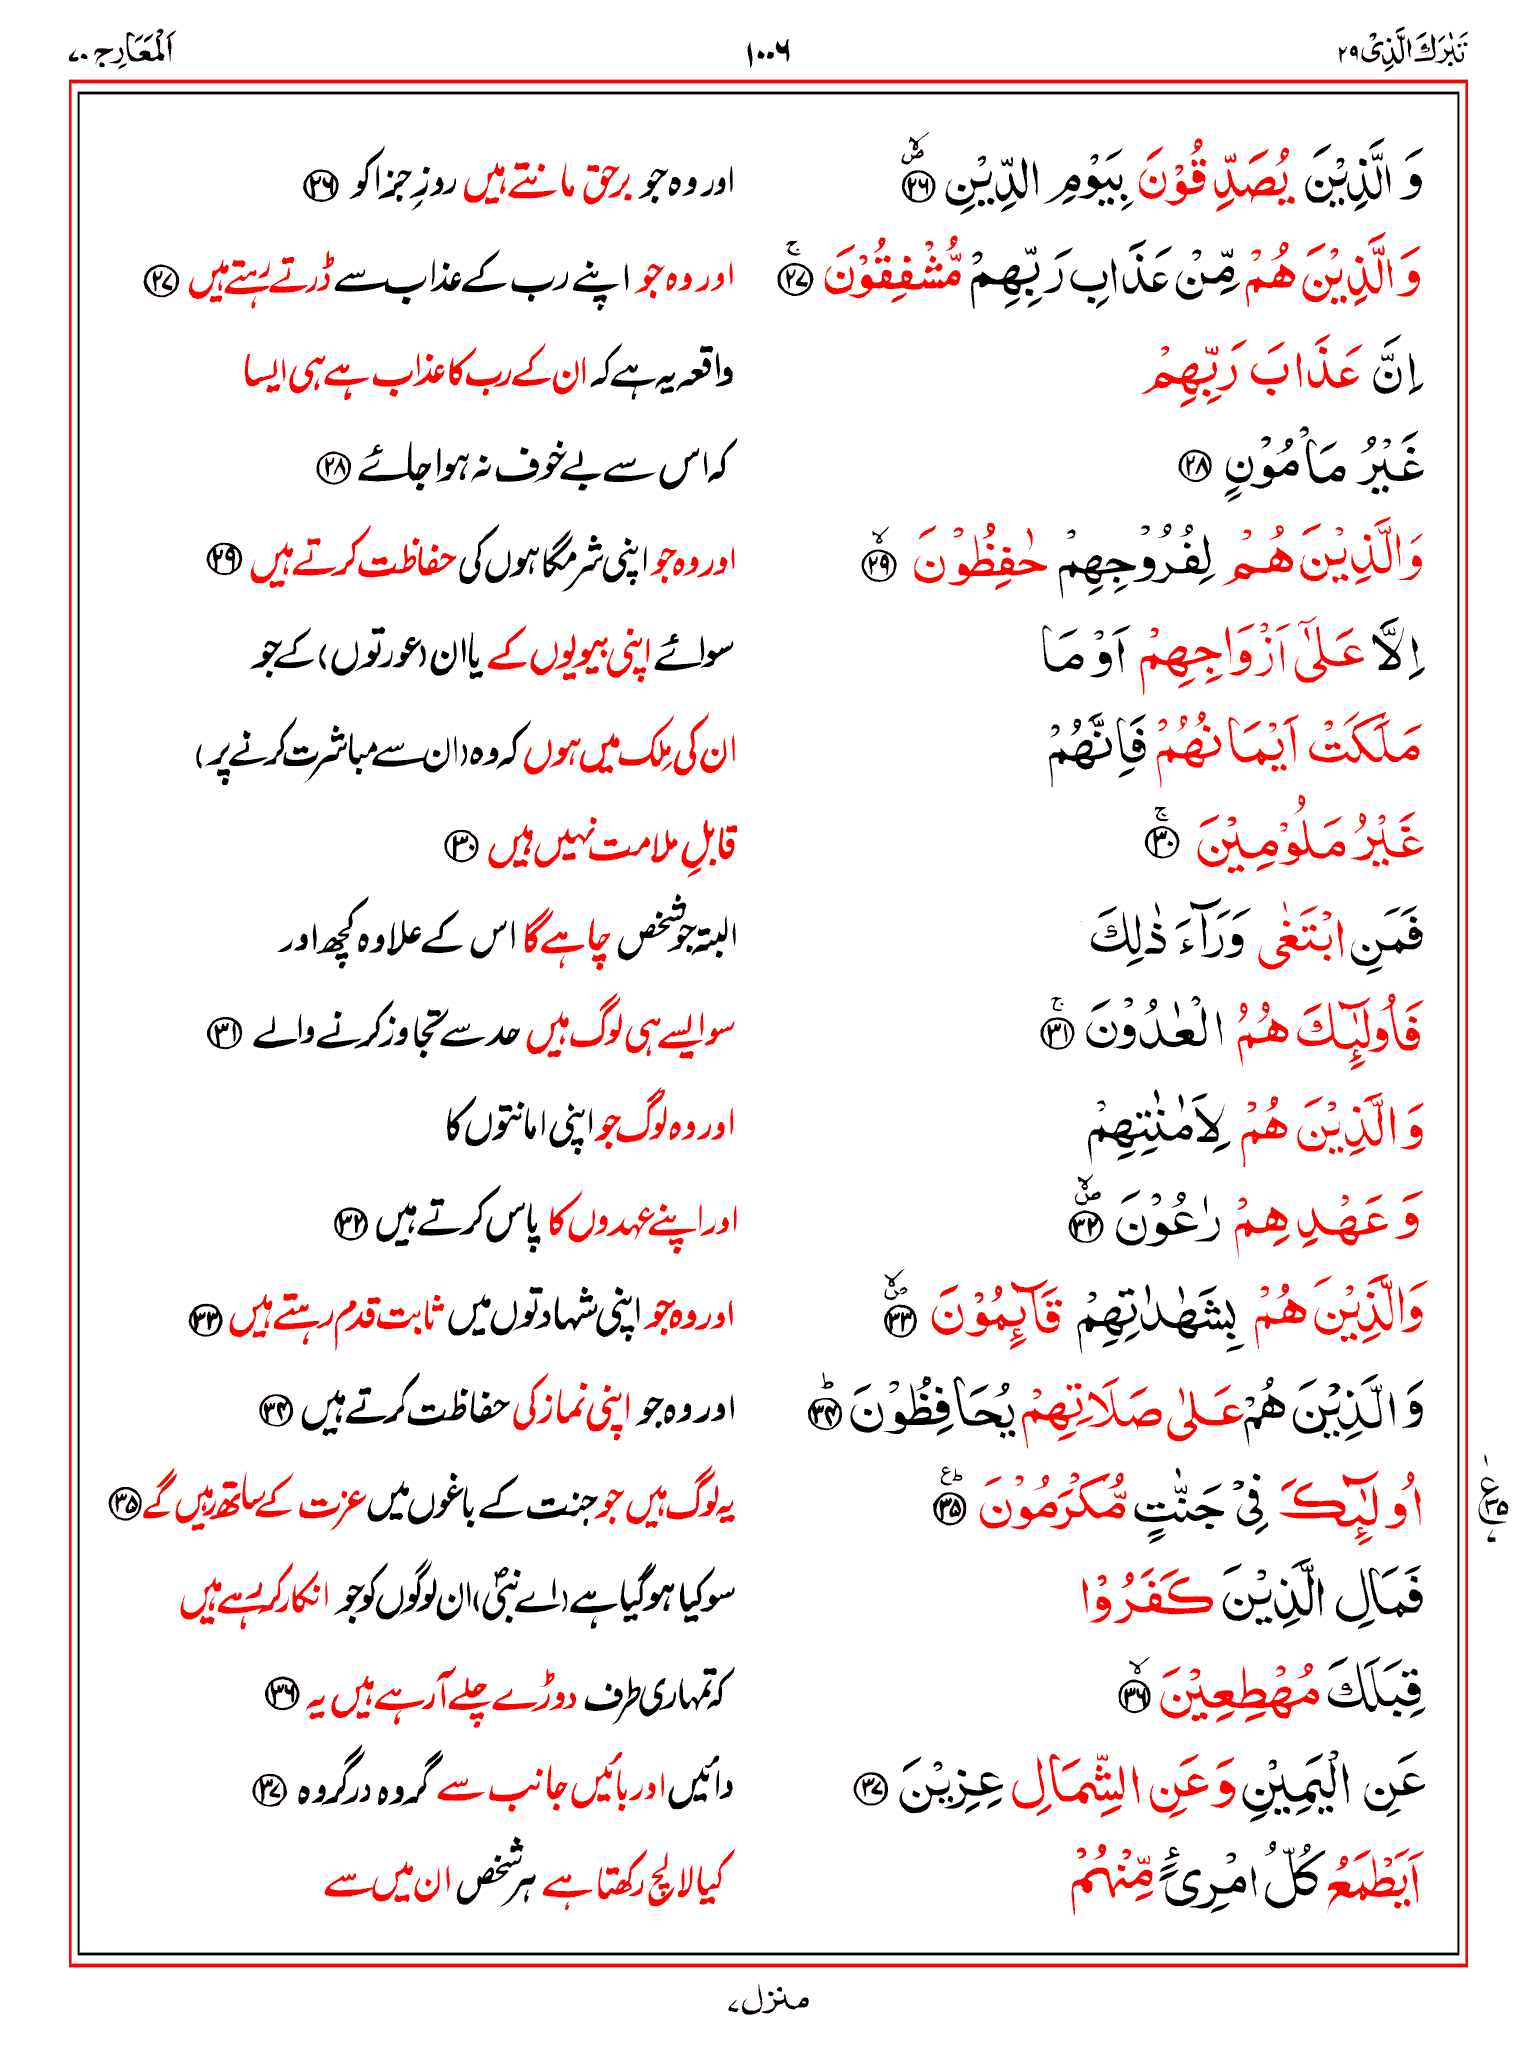 تَبٰرَكَ الَّذِیْ ۲۹ ۱۰۰۶ اَلْمَعَارِج ۷۰
وَ الَّذِیْنَ یُصَدِّقُوْنَ بِیَوْمِ الدِّیْنِ ۲۶ اور وہ جو برحق مانتے ہیں روزِ جزا کو ۲۶
وَ الَّذِیْنَ هُمْ مِّنْ عَذَابِ رَبِّهِمْ مُّشْفِقُوْنَ ۲۷ اور وہ جو اپنے رب کے عذاب سے ڈرتے رہتے ہیں ۲۷
اِنَّ عَذَابَ رَبِّهِمْ واقعہ یہ ہے کہ ان کے رب کا عذاب ہے ہی ایسا
غَیْرُ مَاْمُوْنٍ ۲۸ کہ اس سے بے خوف نہ ہوا جائے ۲۸
وَ الَّذِیْنَ هُمْ لِفُرُوْجِهِمْ حٰفِظُوْنَ ۲۹ اور وہ جو اپنی شرمگاہوں کی حفاظت کرتے ہیں ۲۹
اِلَّا عَلٰۤی اَزْوَاجِهِمْ اَوْ مَا سوائے اپنی بیویوں کے یا ان (عورتوں) کے جو
مَلَكَتْ اَیْمَانُهُمْ فَاِنَّهُمْ ان کی مِلک میں ہوں کہ وہ (ان سے مباشرت کرنے پر)
غَیْرُ مَلُوْمِیْنَ ۳۰ قابلِ ملامت نہیں ہیں ۳۰
فَمَنِ ابْتَغٰی وَرَآءَ ذٰلِكَ البتہ جو شخص چاہے گا اس کے علاوہ کچھ اور
فَاُولٰٓئِكَ هُمُ الْعٰدُوْنَ ۳۱ سو ایسے ہی لوگ ہیں حد سے تجاوز کرنے والے ۳۱
وَ الَّذِیْنَ هُمْ لِاَمٰنٰتِهِمْ اور وہ لوگ جو اپنی امانتوں کا
وَ عَهْدِهِمْ رٰعُوْنَ ۳۲ اور اپنے عہدوں کا پاس کرتے ہیں ۳۲
وَ الَّذِیْنَ هُمْ بِشَهٰدٰتِهِمْ قَآئِمُوْنَ ۳۳ اور وہ جو اپنی شہادتوں میں ثابت قدم رہتے ہیں ۳۳
وَ الَّذِیْنَ هُمْ عَلٰی صَلَاتِهِمْ یُحَافِظُوْنَ ۳۴ اور وہ جو اپنی نماز کی حفاظت کرتے ہیں ۳۴
اُولٰٓئِكَ فِیْ جَنّٰتٍ مُّكْرَمُوْنَ ۳۵ یہ لوگ ہیں جو جنت کے باغوں میں عزت کے ساتھ رہیں گے ۳۵
فَمَالِ الَّذِیْنَ كَفَرُوْا سو کیا ہو گیا ہے (اے نبیؐ) ان لوگوں کو جو انکار کر رہے ہیں
قِبَلَكَ مُهْطِعِیْنَ ۳۶ کہ تمہاری طرف دوڑے چلے آرہے ہیں یہ ۳۶
عَنِ الْیَمِیْنِ وَ عَنِ الشِّمَالِ عِزِیْنَ ۳۷ دائیں اور بائیں جانب سے گروہ در گروہ ۳۷
اَیَطْمَعُ كُلُّ امْرِئٍ مِّنْهُمْ کیا لالچ رکھتا ہے ہر شخص ان میں سے
منزل ۷